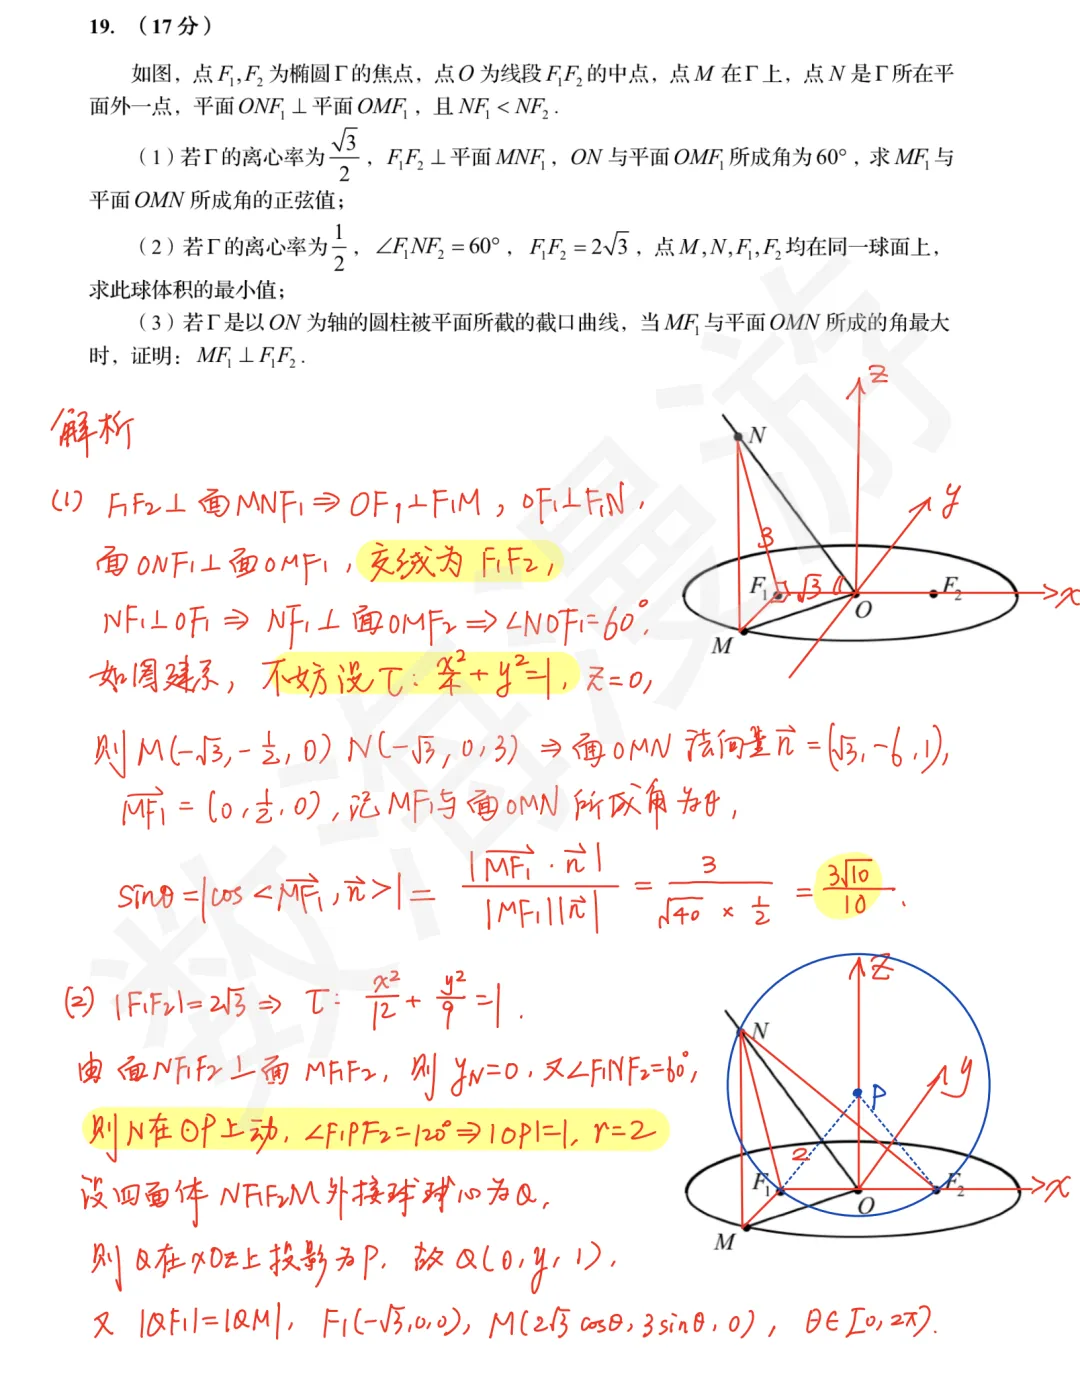 19. （17 分）
如图，点 F₁, F₂ 为椭圆 Γ 的焦点，点 O 为线段 F₁F₂ 的中点，点 M 在 Γ 上，点 N 是 Γ 所在平
面外一点，平面 ONF₁ ⊥ 平面 OMF₁，且 NF₁ < NF₂．
（1）若 Γ 的离心率为 √3/2，F₁F₂ ⊥ 平面 MNF₁，ON 与平面 OMF₁ 所成角为 60°，求 MF₁ 与
平面 OMN 所成角的正弦值；
（2）若 Γ 的离心率为 1/2，∠F₁NF₂ = 60°，F₁F₂ = 2√3，点 M, N, F₁, F₂ 均在同一球面上，
求此球体积的最小值；
（3）若 Γ 是以 ON 为轴的圆柱被平面所截的截口曲线，当 MF₁ 与平面 OMN 所成的角最大
时，证明：MF₁ ⊥ F₁F₂．
解析
(1) F₁F₂⊥面MNF₁ ⇒ OF₁⊥F₁M，OF₁⊥F₁N，
面ONF₁⊥面OMF₁，交线为 F₁F₂，
NF₁⊥OF₁ ⇒ NF₁⊥面OMF₂ ⇒ ∠NOF₁=60°.
如图建系，不妨设 τ: x²/4 + y²=1, z=0,
则 M(-√3, -1/2, 0) N(-√3, 0, 3) ⇒ 面OMN 法向量n⃗ = (√3, -6, 1),
MF₁⃗ = (0, 1/2, 0), 记MF₁与面OMN所成角为θ,
sinθ = |cos<MF₁⃗, n⃗>| = |MF₁⃗ · n⃗| / |MF₁||n⃗| = 3 / (√40 × 1/2) = 3√10/10 .
N
z
y
3
F₁
√3
O
F₂
x
M
(2) |F₁F₂|=2√3 ⇒ τ: x²/12 + y²/9 = 1 .
由面NF₁F₂⊥面MF₁F₂, 则 y_N=0, 又∠F₁NF₂=60°,
则N在⊙P上动, ∠F₁PF₂=120° ⇒ |OP|=1, r=2
设四面体 NF₁F₂M外接球球心为Q,
则 Q在xOz上投影为P, 故 Q(0, y, 1),
又 |QF₁|=|QM|, F₁(-√3,0,0), M(2√3 cosθ, 3sinθ, 0), θ∈[0, 2π).
z
N
y
P
2
F₁
O
F₂
x
M
数海漫游